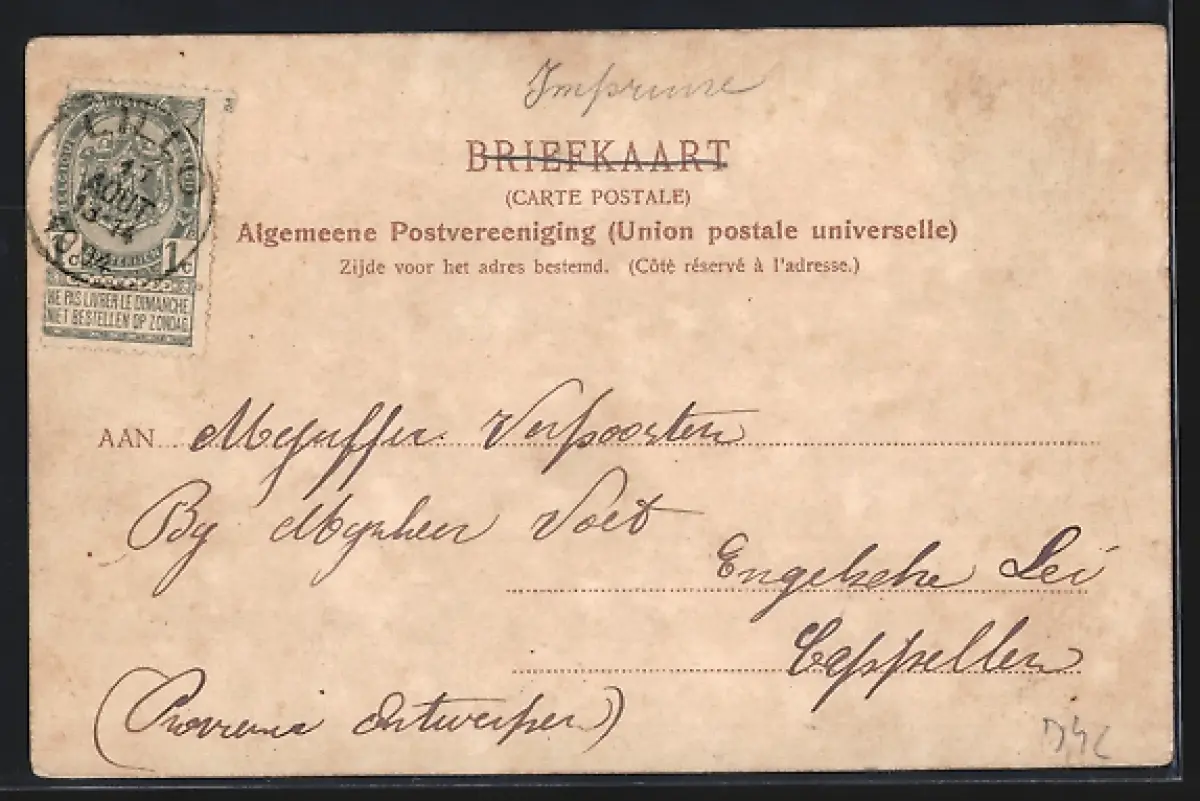 Imprimé
BRIEFKAART
(CARTE POSTALE)
Algemeene Postvereeniging (Union postale universelle)
Zijde voor het adres bestemd. (Côté réservé à l'adresse.)
LILLO
AOUT
13-14
1c
NE PAS LIVRER LE DIMANCHE
NIET BESTELLEN OP ZONDAG
AAN Mejuffer Verpoorten
By Mynheer Voet
Engelsche Lei
Cappellen
(Provincie Antwerpen)